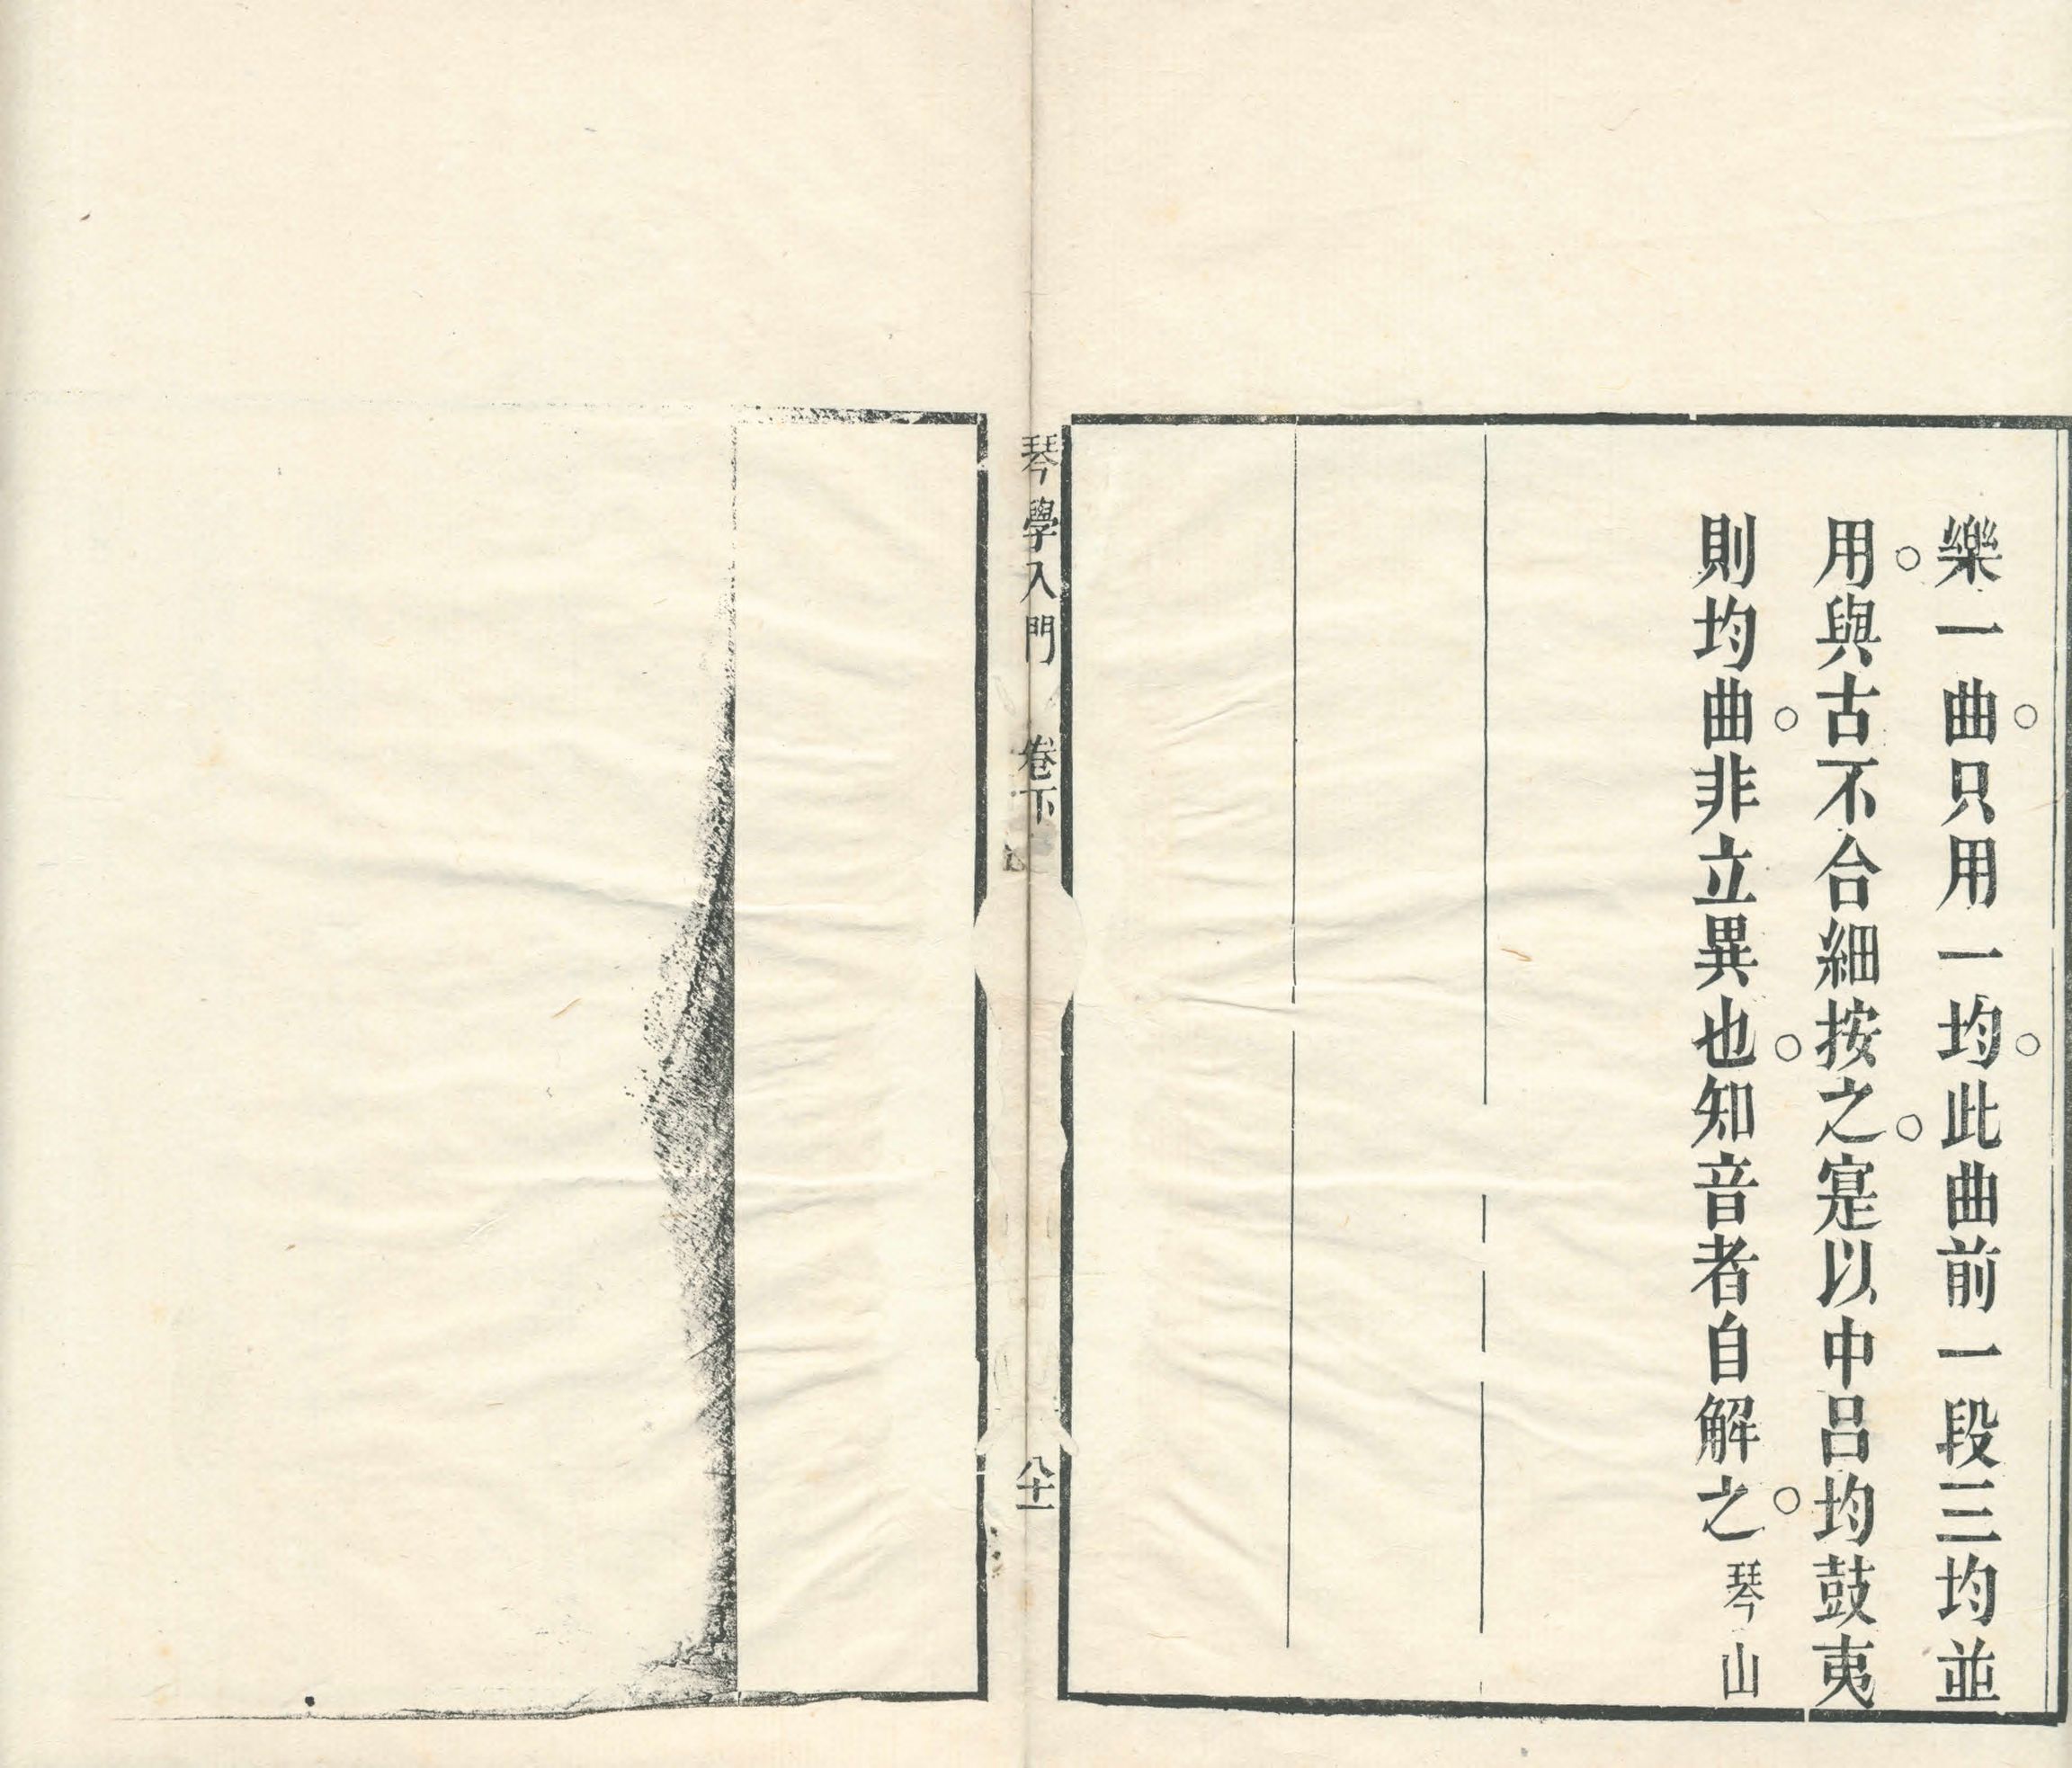 樂一曲只用一均此曲前一段三均並
用與古不合細按之寔以中呂均鼓夷
則均曲非立異也知音者自解之琴山
琴學入門
卷下
八十一